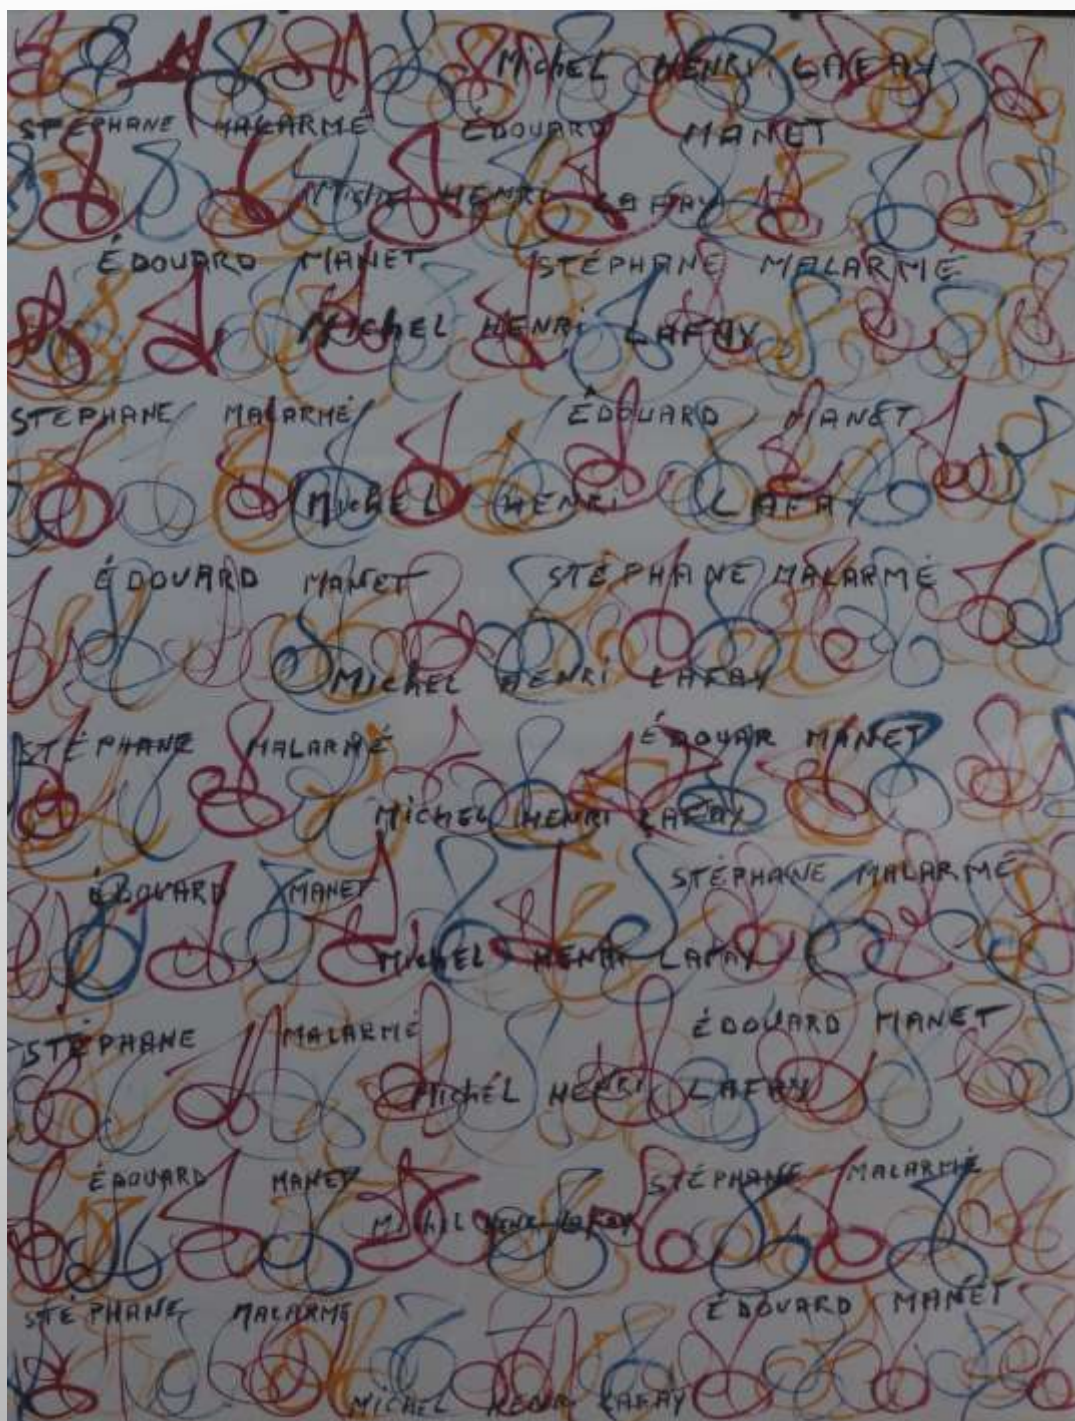 MichEL HENRi LAFAY
STÉPHANE MALARMÉ ÉDOUARD MANET
MicheL HENRi LAFAY
ÉDOUARD MANET STÉPHANE MALARMÉ
MichEL HENRi LAFAY
STÉPHANE MALARMÉ ÉDOUARD MANET
MichEL HENRi LAFAY
ÉDOUARD MANET STÉPHANE MALARMÉ
MicHEL HENRi LAFAY
STÉPHANE MALARMÉ ÉDOUAR MANET
MicHEL HENRi LAFAY
ÉDOUARD MANET STÉPHANE MALARMÉ
MicHEL HENRi LAFAY
STÉPHANE MALARMÉ ÉDOUARD MANET
MichÉL HENRi LAFAY
ÉDOUARD MANET STÉPHANE MALARMÉ
MichEL HENRi LAFAY
STÉPHANE MALARMÉ ÉDOUARD MANÉT
MicHEL HENRi LAFAY